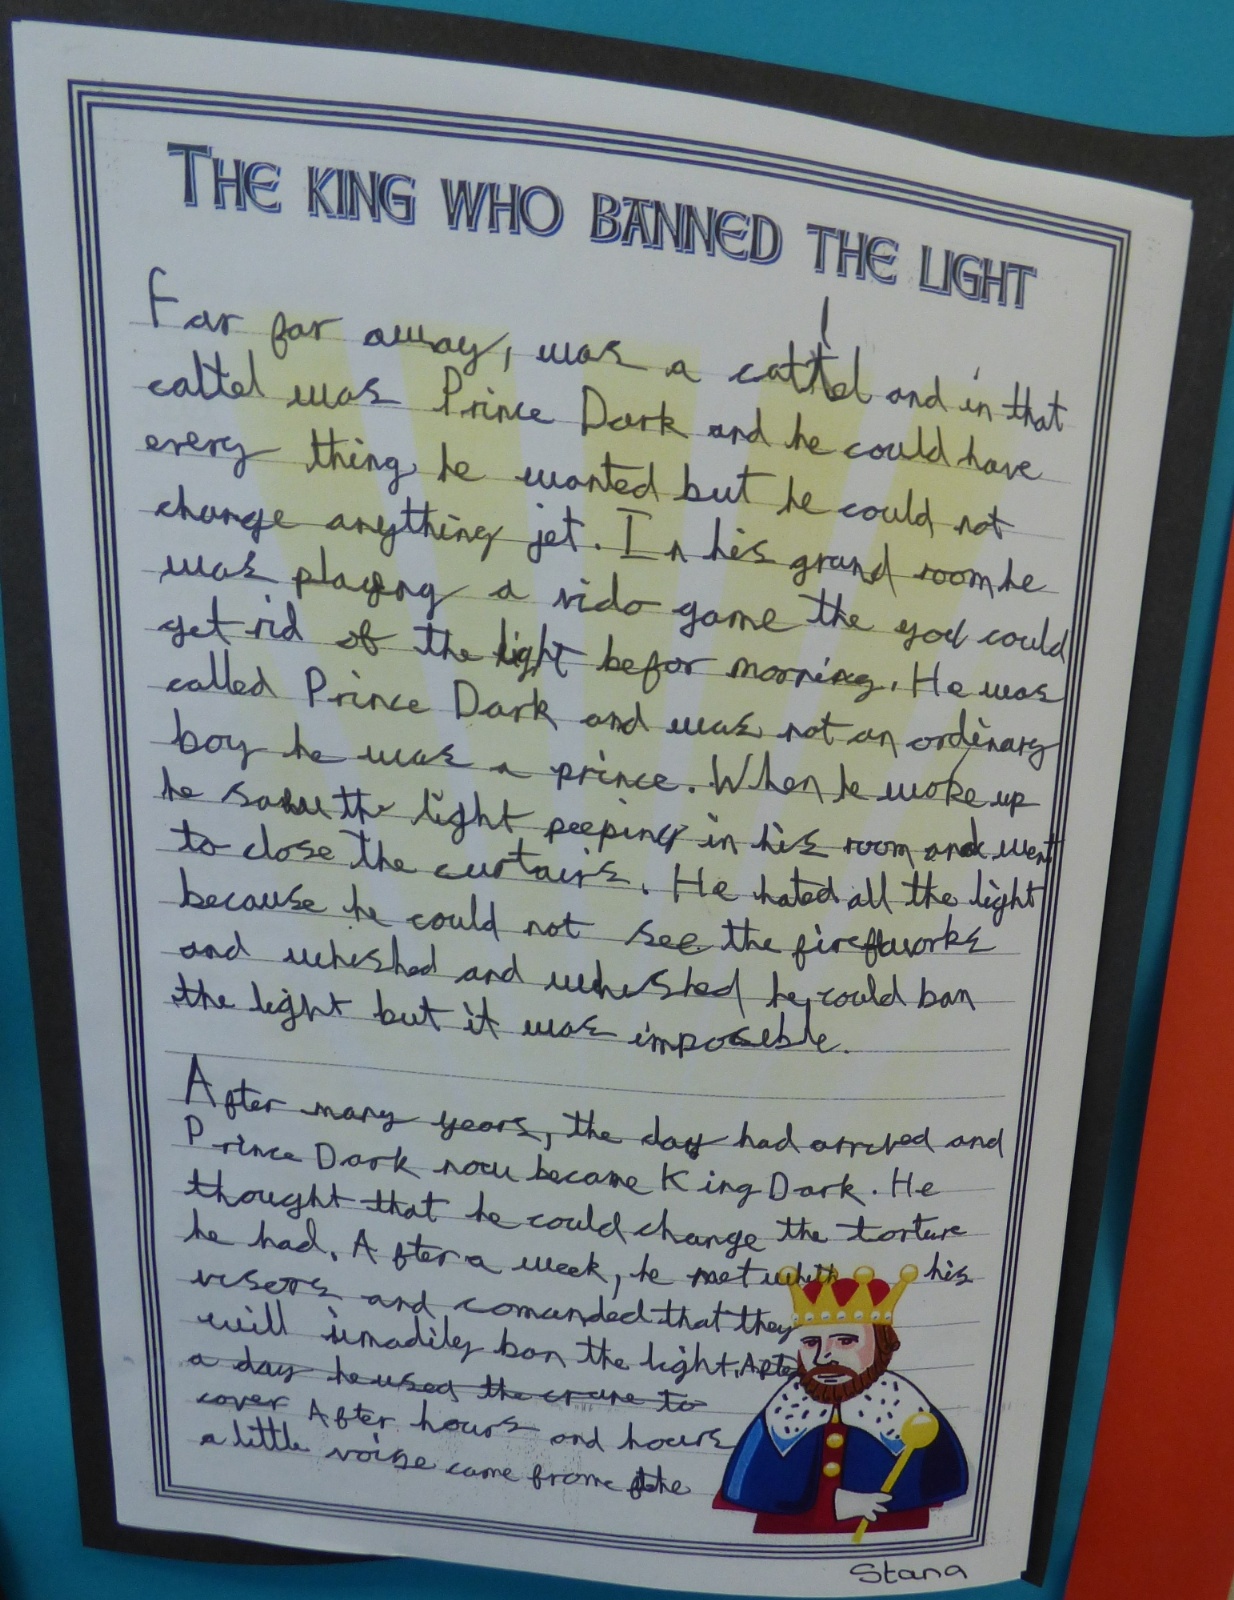 THE KING WHO BANNED THE LIGHT
Far far away, was a cattel and in that
cattel was Prince Dark and he could have
every thing he wanted but he could not
change anything jet. In his grand room he
was playing a vido game the you could
get rid of the light befor morning. He was
called Prince Dark and was not an ordinary
boy he was a prince. When he woke up
he saw the light peeping in his room and went
to close the curtains. He hated all the light
because he could not see the fireworks
and whished and whished he could ban
the light but it was imposible.
After many years, the day had arrived and
Prince Dark now became King Dark. He
thought that he could change the torture
he had. After a week, he met whith his
visors and comanded that they
will imadiley ban the light. After
a day he used the crane to
cover After hours and hours
a little voise came frome the
Stana